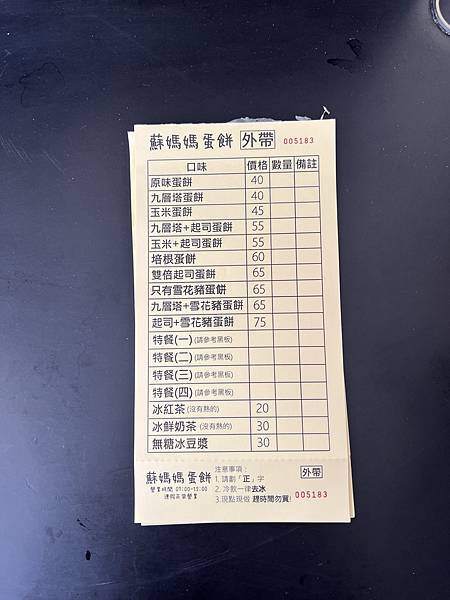 蘇媽媽蛋餅 外帶 005183
口味 價格 數量 備註
原味蛋餅 40
九層塔蛋餅 40
玉米蛋餅 45
九層塔+起司蛋餅 55
玉米+起司蛋餅 55
培根蛋餅 60
雙倍起司蛋餅 65
只有雪花豬蛋餅 65
九層塔+雪花豬蛋餅 65
起司+雪花豬蛋餅 75
特餐(一) (請參考黑板)
特餐(二) (請參考黑板)
特餐(三) (請參考黑板)
特餐(四) (請參考黑板)
冰紅茶 (沒有熱的) 20
冰鮮奶茶 (沒有熱的) 30
無糖冰豆漿 30
蘇媽媽蛋餅
營業時間 07:00-13:00
注意事項:
1. 請劃「正」字
2. 冷飲一律去冰
3.現點現做 趕時間勿買!
外帶
005183